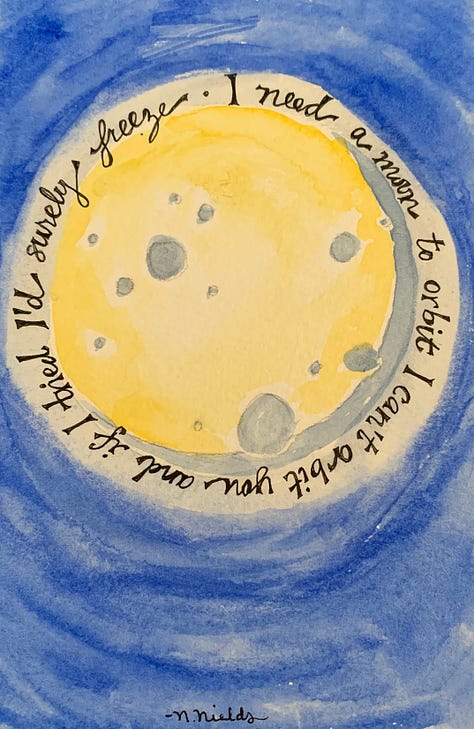 I need a moon to orbit I can't orbit you and if I tried I'd surely freeze.
-N. Nields